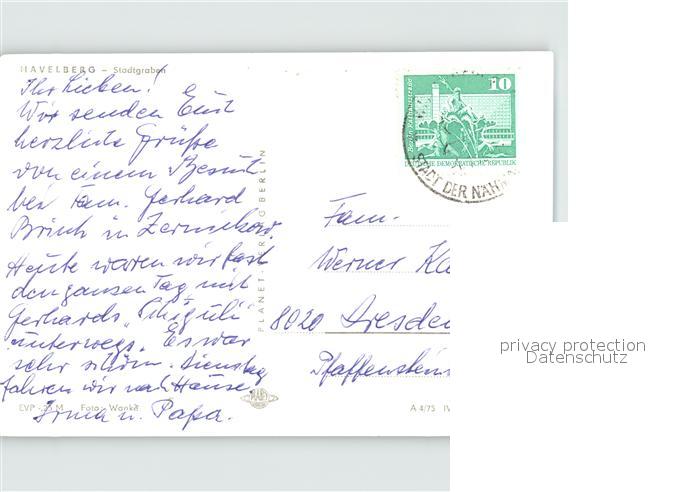 HAVELBERG – Stadtgraben
Ihr Lieben!
Wir senden Euch
herzliche Grüße
von einem Besuch
bei Fam. Gerhard
Brink in
Heute waren wir fast
den ganzen Tag mit
Gerhards „Shiguli"
unterwegs. Es war
sehr schön. Dienstag
fahren wir nach Hause.
Irma u. Papa.
EVP -,25 M Foto: Wanke
PLANET-VERLAG BERLIN
10
DEUTSCHE DEMOKRATISCHE REPUBLIK
STADT DER NÄHM
Fam.
Werner
8020 Dresden
Pfaffenstein
A 4/75 IV
privacy protection
Datenschutz